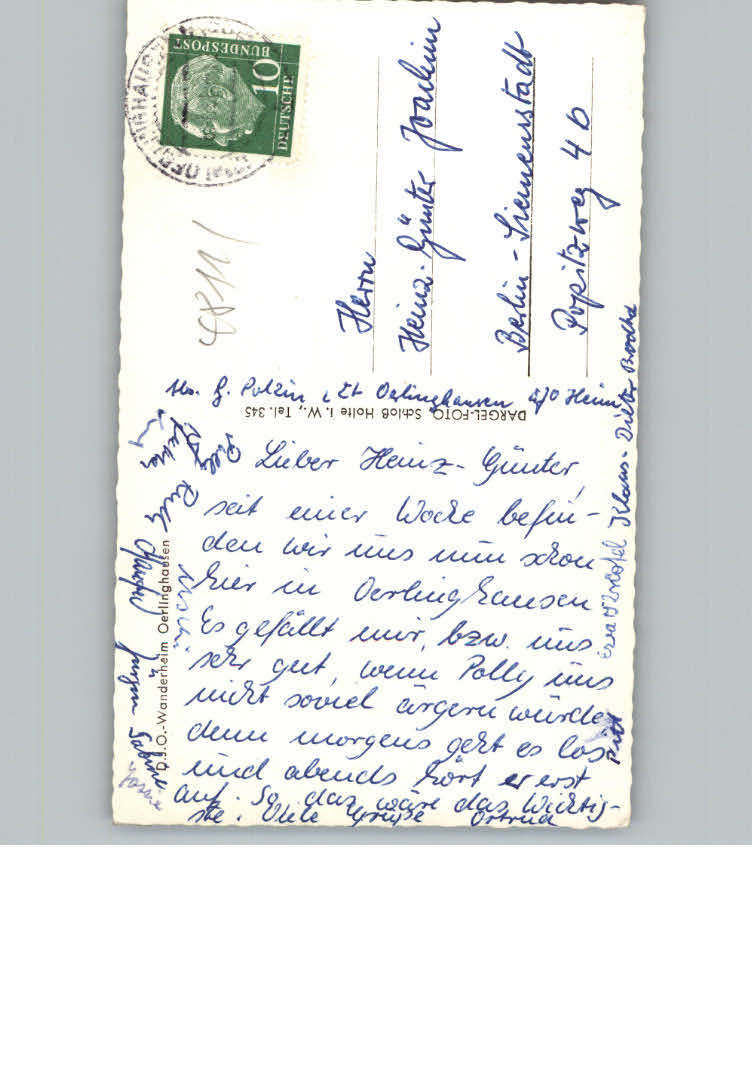 Lieber Heinz-Günter,
seit einer Woche befin-
den wir uns nun schon
hier in Oerlinghausen
Es gefällt mir, bzw. uns
sehr gut, wenn Polly uns
nicht soviel ärgern würde,
denn morgens geht es los
und abends hört er erst
auf. So, das wäre das Wichtig-
ste. Viele Grüße Ortrud
Abs. G. Polzin z. Zt. Oerlinghausen DJO Heim
Herrn
Heinz-Günter Joachim
Berlin-Siemensstadt
Popitzweg 4b
Klaus-Dieter
Jürgen Sabine
DARGEL-FOTO Schloß Holte i. W., Tel. 345
D.J.O.-Wanderheim Oerlinghausen
DEUTSCHE
BUNDESPOST
10